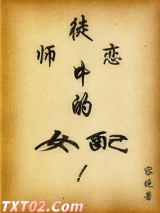 师徒恋
中的
女配！
著
TXT02.Com